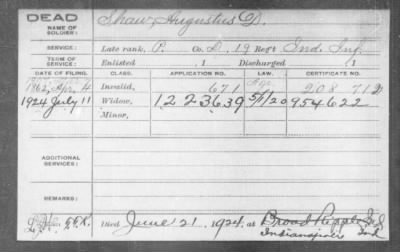 DEAD
NAME OF SOLDIER: Shaw, Augustus D.
SERVICE: Late rank, P. Co. D, 19 Reg't Ind. Inf.
TERM OF SERVICE: Enlisted , 1 Discharged , 1
DATE OF FILING. CLASS. APPLICATION NO. LAW. CERTIFICATE NO.
1862, Apr, 4 Invalid, 671 208 712
1924 July 11 Widow, 1223639 5/1/20 954622
Minor,
ADDITIONAL SERVICES:
REMARKS:
Died June 21, 1924, at Broad Ripple Ind
Indianapolis Ind